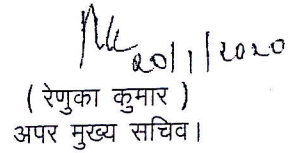 20/1/2020
( रेणुका कुमार )
अपर मुख्य सचिव।